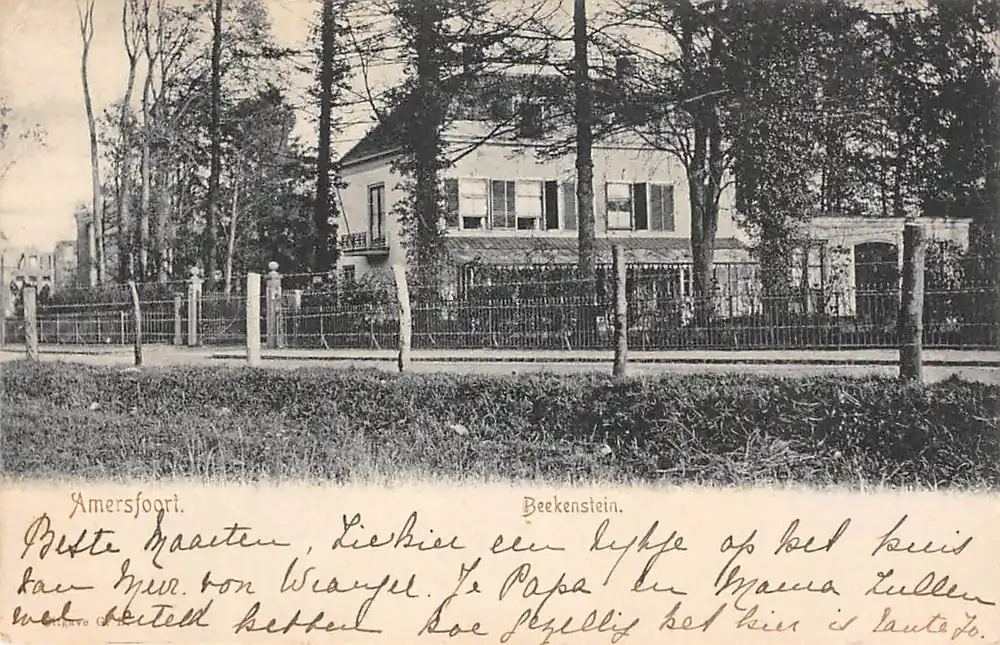 Amersfoort. Beekenstein.
Beste Maarten, Ziehier een kykje op het huis
van Mevr. von Wrangel. Je Papa en Mama zullen
wel verteld hebben hoe gezellig het hier is Tante Jo.